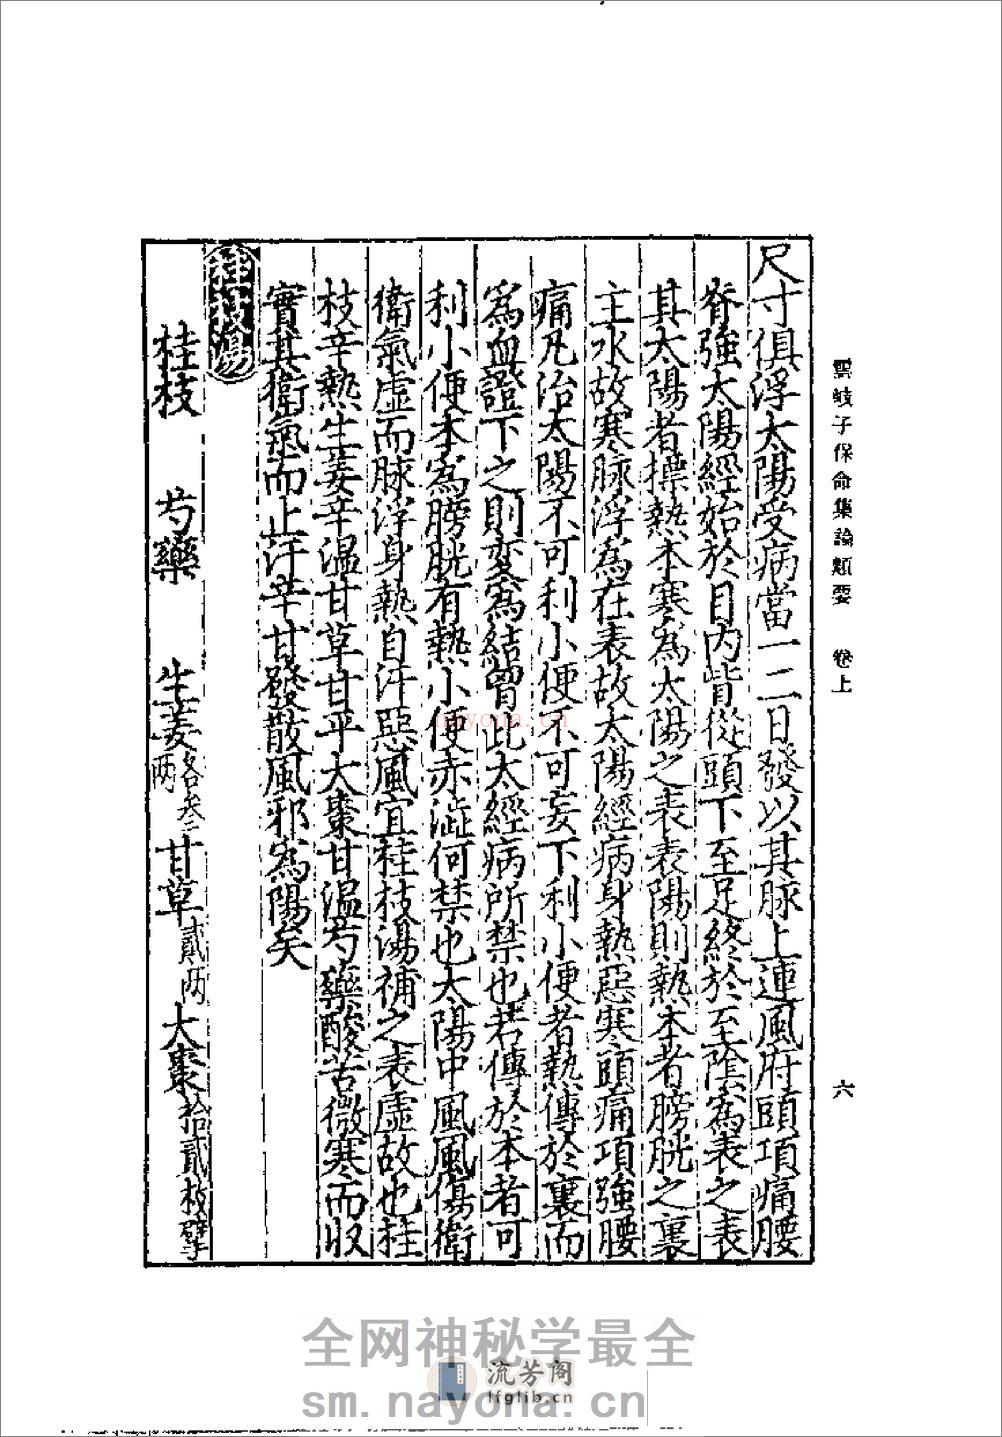 雲岐子保命集論類要　卷上　六
尺寸俱浮太陽受病當一二日發以其脉上連風府頭項痛腰
脊強太陽經始於目内眥從頭下至足終於至陰為表之表
其太陽者摽熱本寒為太陽之表表陽則熱本者膀胱之裏
主水故寒脉浮為在表故太陽經病身熱惡寒頭痛項強腰
痛凡治太陽不可利小便不可妄下利小便者熱傳於裏而
為血證下之則变為結胷此太經病所禁也若傳於本者可
利小便本為膀胱有熱小便赤澁何禁也太陽中風風傷衛
衛氣虛而脉浮身熱自汗惡風宜桂枝湯補之表虛故也桂
枝辛熱生姜辛温甘草甘平大棗甘温芍藥酸苦微寒而收
實其衛氣而止汗辛甘發散風邪為陽矣
桂枝湯
桂枝　芍藥　生姜各叁两　甘草貳两　大棗拾貳枚擘
nayona.cn
全网神秘学最全
流芳阁
lfglib.cn
sm.nayona.cn